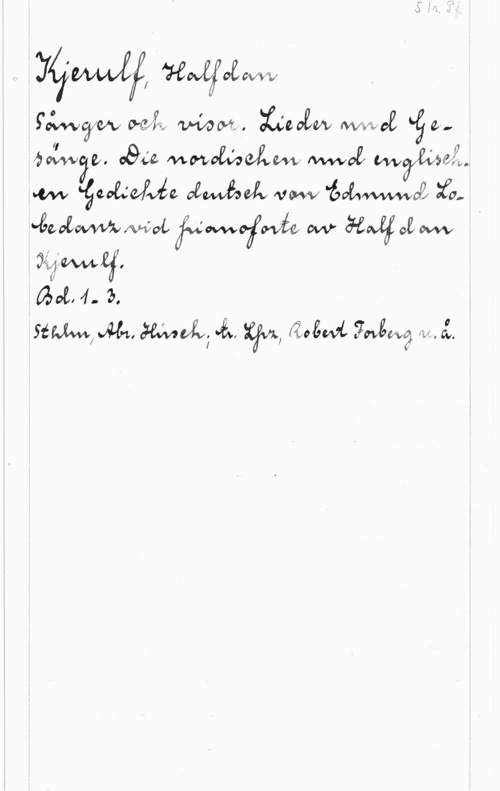 S/r. Pf.
Kjerulf, Halfdan
Sånger och visor. Lieder und Ge-
sänge. Die nordischen und englisch-
en Gedichte deutsch von Edmund Lo-
bedanz vid pianoforte av Halfdan
Kjerulf.
Bd. 1-3.
Sthlm, Abr. Hirsch; tr. Lpz, Robert Forberg u. å.